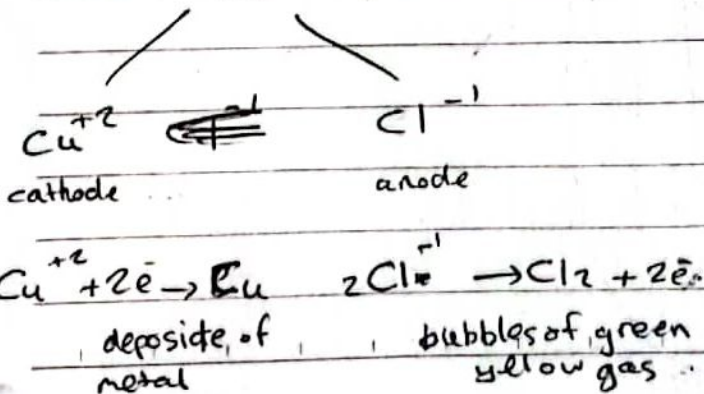 Cu⁺² Cl⁻¹
cathode anode
Cu⁺² + 2ē → Cu 2Cl⁻¹ → Cl₂ + 2ē
deposide of bubbles of green
metal yellow gas